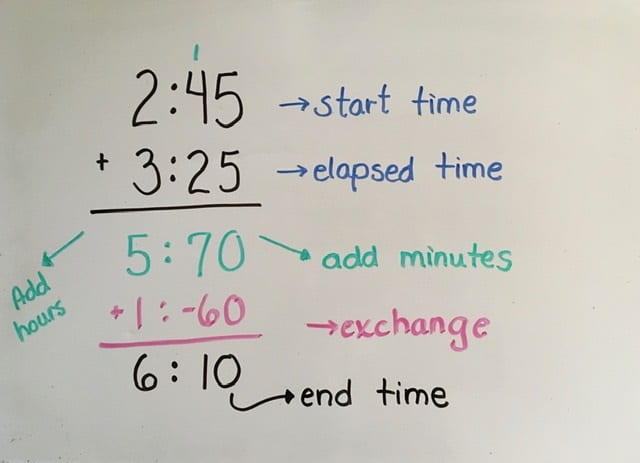 1
2:45 →start time
+ 3:25 →elapsed time
5:70 add minutes
Add hours
+1:-60 →exchange
6:10 →end time